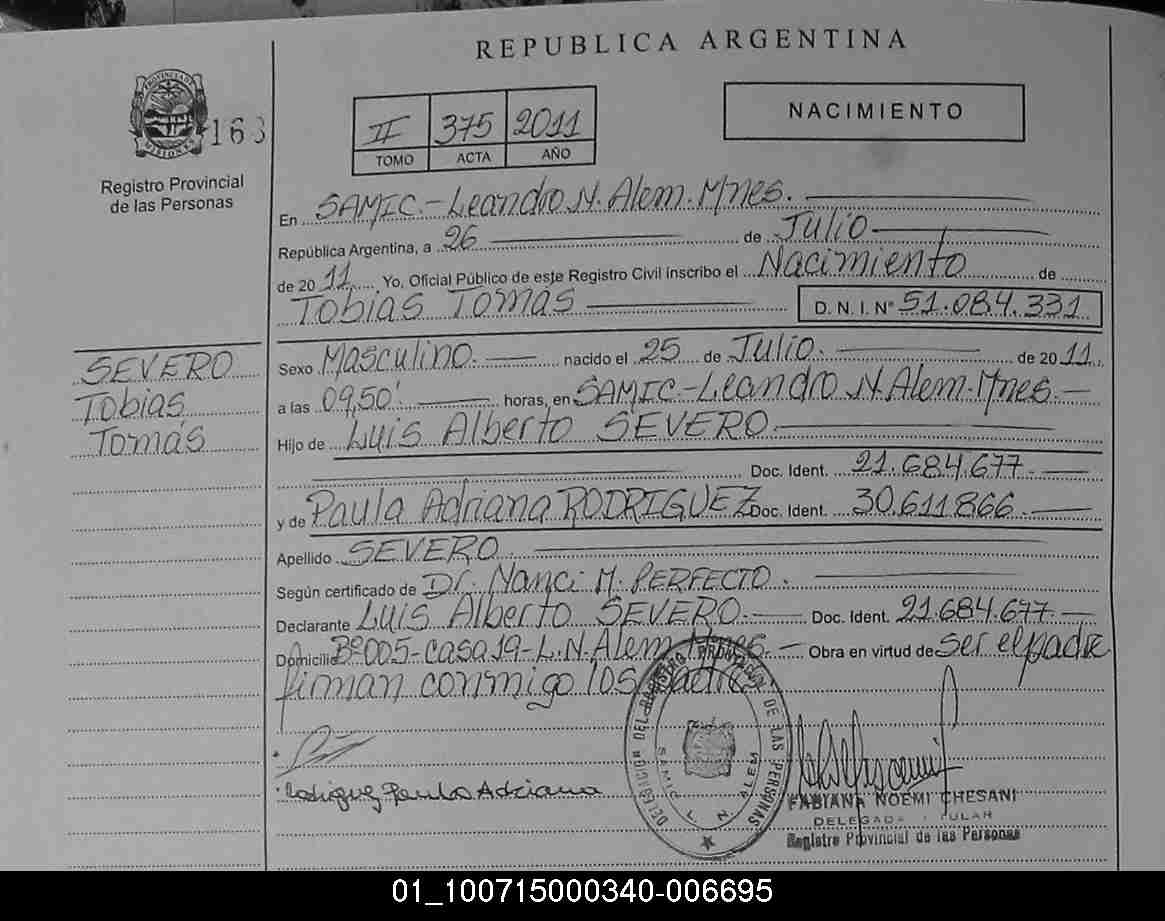 REPUBLICA ARGENTINA
PROVINCIA DE MISIONES
163
Registro Provincial
de las Personas
II 375 2011
TOMO ACTA AÑO
NACIMIENTO
En SAMIC.-Leandro N. Alem. Mnes.
República Argentina, a 26 de Julio
de 2011 Yo, Oficial Público de este Registro Civil inscribo el Nacimiento de
Tobias Tomás D. N. I. Nº 51.084.331
SEVERO
Tobias
Tomás
Sexo Masculino. nacido el 25 de Julio. de 2011
a las 09,50' horas, en SAMIC-Leandro N. Alem-Mnes-
Hijo de Luis Alberto SEVERO
Doc. Ident. 21.684.677
y de Paula Adriana RODRIGUEZ Doc. Ident. 30.611.866
Apellido SEVERO
Según certificado de Dr. Nanci M. PERFECTO.
Declarante Luis Alberto SEVERO. Doc. Ident. 21.684.677
Domicilio Bº005-casa 19-L.N.Alem Mnes.- Obra en virtud de ser el padre
firman conmigo los padres
Rodriguez Paula Adriana
DELEGACION DEL REGISTRO PROVINCIAL DE LAS PERSONAS
SAMIC L. N. ALEM
FABIANA NOEMI CHESANI
DELEGADA TITULAR
Registro Provincial de las Personas
01_100715000340-006695